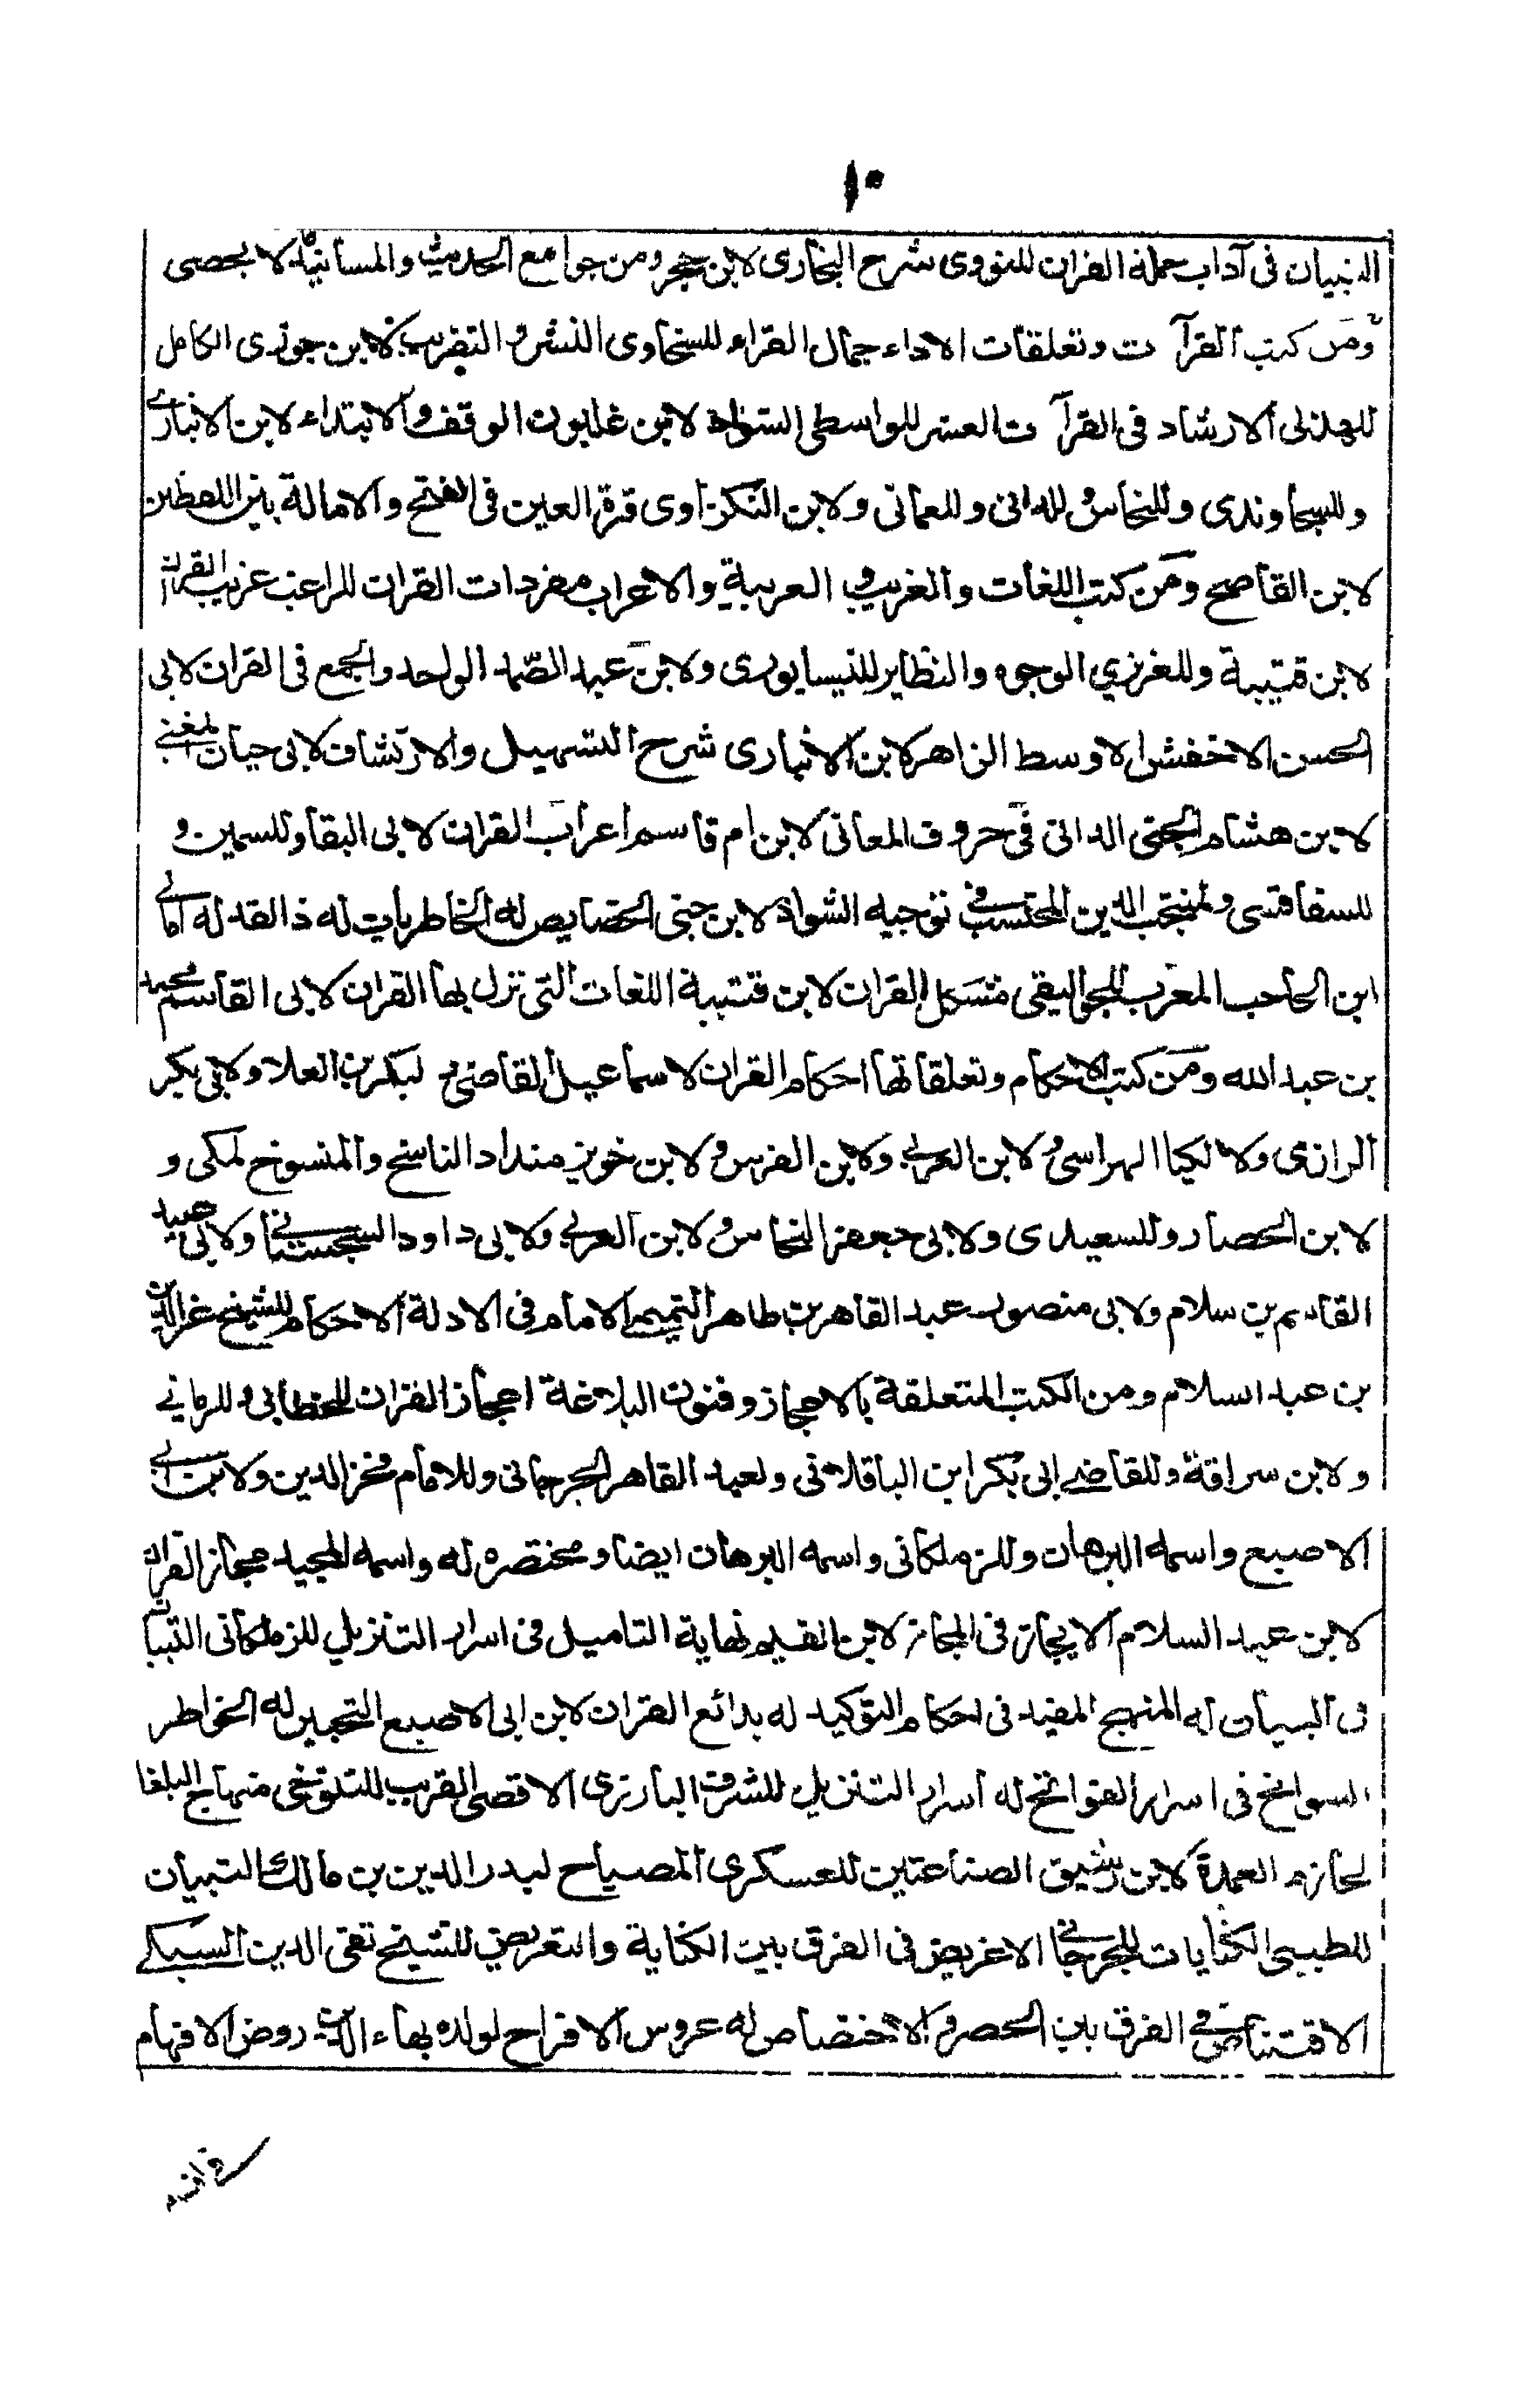 ١٠
التبيان فى آداب حملة القران للنووى شرح البخارى لابن حجر ومن جوامع الحديث والمسانيد لا يحصى
ومن كتب القرآت وتعلقات الاداء جمال القراء للسخاوى النشر و التقريب لابن جوزى الكامل
للهذلى الارشاد فى القرآت العشر للواسطى الشواذ لابن غلبون الوقف والابتداء لابن الانبارى
وللسجاوندى وللنحاس وللدانى وللعمانى ولابن النكزاوى قرة العين فى الفتح والامالة بين اللفظين
لابن القاصح ومن كتب اللغات والغريب و العربية والاعراب مفردات القران للراغب غريب القران
لابن قتيبة وللعزيزي الوجوه والنظاير للنيسابورى ولابن عبد الصمد الواحد والجمع فى القران لابى
الحسن الاخفش الاوسط الزاهر لابن الانبارى شرح التسهيل والارتشاف لابى حيان المغنى
لابن هشام الجنى الدانى فى حروف المعانى لابن ام قاسم اعراب القران لابى البقا وللسمين و
للسفاقسى ولمنتجب الدين المحتسب فى توجيه الشواذ لابن جنى الخصايص له الخاطريات له ذا القد له امالى
ابن الحاجب المعرب للجواليقى مشكل القران لابن قتيبة اللغات التى نزل بها القران لابى القاسم محمد
بن عبد الله ومن كتب الاحكام وتعلقاتها احكام القران لاسماعيل القاضى و لبكر بن العلا ولابى بكر
الرازى ولالكيا الهراسى و لابن العربى ولابن الفرس و لابن خويز منداد الناسخ والمنسوخ لمكى و
لابن الحصار وللسعيدى ولابى جعفر النحاس و لابن العربى ولابى داود السجستانى ولابى عبيد
القاسم بن سلام ولابى منصور عبد القاهر بن طاهر التميمى الامام فى الادلة الاحكام للشيخ عز الدين
بن عبد السلام ومن الكتب المتعلقة بالاعجاز وفنون البلاغة اعجاز القران للخطابى وللرمانى
ولابن سراقة وللقاضى ابى بكر ابن الباقلانى ولعبد القاهر الجرجانى وللامام فخر الدين ولابن ابى
الاصبع واسمه البرهان وللزملكانى واسمه البرهان ايضا ومختصره له واسمه المجيد مجاز القران
لابن عبد السلام الايجاز فى المجاز لابن القيم نهاية التاميل فى اسرار التنزيل للزملكانى التبيان
فى البيان له المنهج المفيد فى احكام التوكيد له بدائع القران لابن ابى الاصبع التحبير له الخواطر
السوانح فى اسرار الفواتح له اسرار التنزيل للشرف البارزى الاقصى القريب للتنوخى منهاج البلغا
لحازم العمدة لابن رشيق الصناعتين للعسكرى المصباح لبدر الدين بن مالك التبيان
للطيبى الكنايات للجرجانى الاغريض فى الفرق بين الكناية والتعريض للشيخ تقى الدين السبكى
الاقتناص فى الفرق بين الحصر و الاختصاص له عروس الافراح لولده بهاء الدين روض الافهام